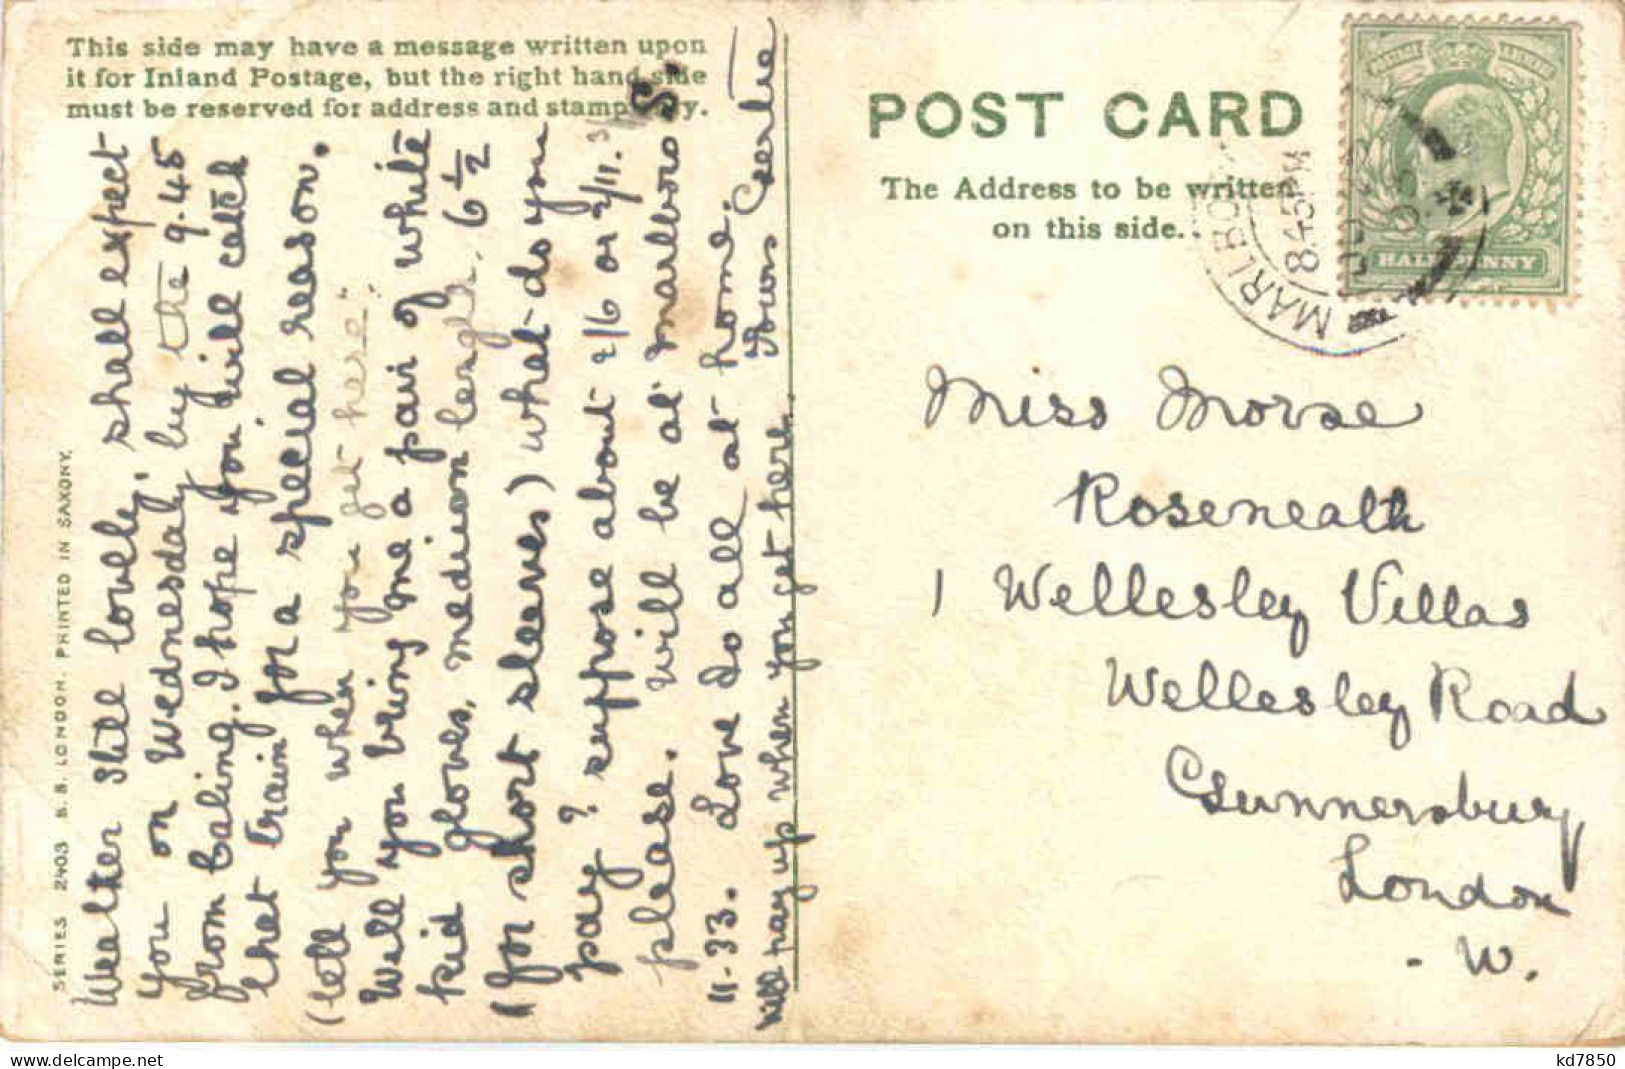 This side may have a message written upon
it for Inland Postage, but the right hand side
must be reserved for address and stamp only.
Weather still lovely, shall expect
you on Wednesday by the 9.45
from Ealing. I hope you will catch
that train for a special reason.
(tell you when "you get here".
Will you bring me a pair of white
kid gloves, medium length, 6½
(for short sleeves) what do you
pay? suppose about 2/6 or 2/11.
please. Will be at Marlboro S.
11-33. Love to all at home.
Yours Gertie
Will pay up when you get here.
SERIES 2403 S.B. LONDON. PRINTED IN SAXONY.
POST CARD
The Address to be written
on this side.
MARLBO
845PM
HALFPENNY
Miss Morse
Roseneath
1 Wellesley Villas
Wellesley Road
Gunnersbury
London
- W.
www.delcampe.net
kd7850